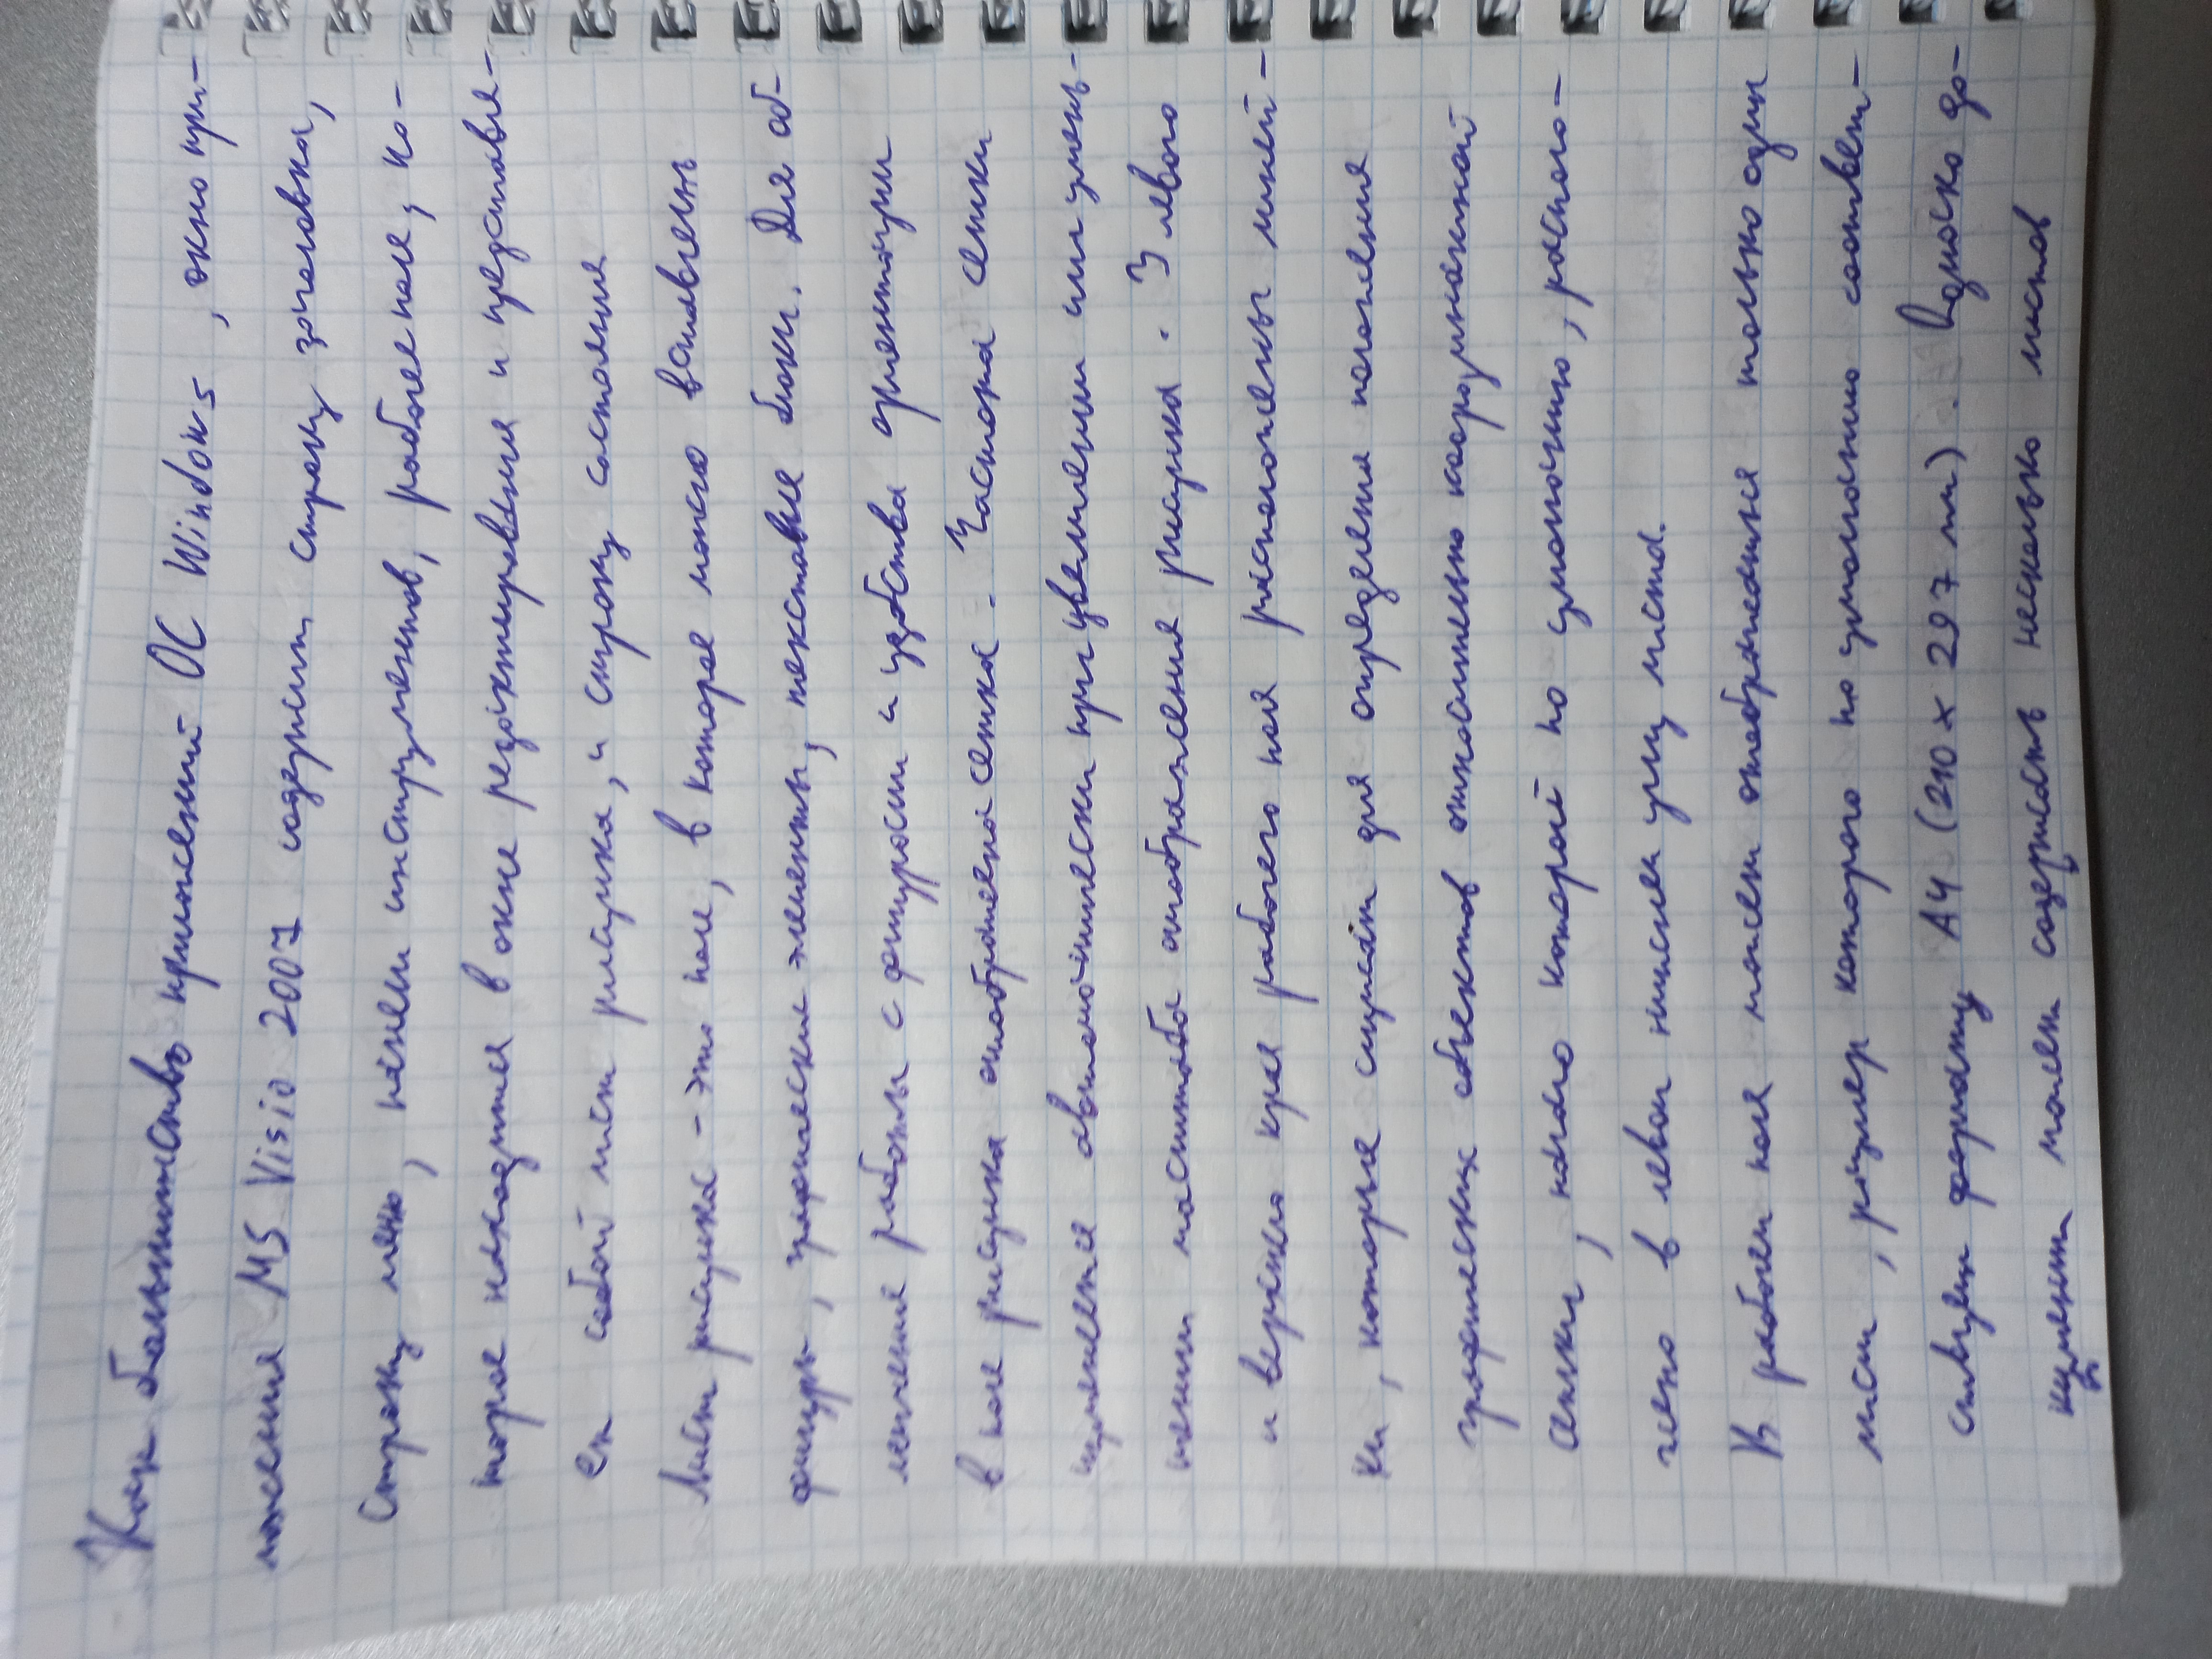 Как большинство приложений ОС Windows, окно при-
ложения MS Visio 2007 содержит строку заголовка,
строку меню, панели инструментов, рабочее поле, ко-
торое находится в окне редактирования и представля-
ет собой лист рисунка, и строку состояния
Лист рисунка - это поле, в которое можно вставлять
фигуры, графические элементы, текстовые блоки. Для об-
легчения работы с фигурости и удобства ориентации
в поле рисунка отображена сетка. Частота сетки
изменяется автоматически при увеличении или умень-
шении масштаба отображения рисунка. У левого
и верхнего края рабочего поля расположены линей-
ки, которые служат для определения положения
графических объектов относительно координатной
сетки, начало которой по умолчанию, располо-
жено в левом нижнем углу листа.
В рабочем поле может отображаться только один
лист, размер которого по умолчанию соответ-
ствует формату А4 (210 х 297 мм). Однако до-
кумент может содержать несколько листов